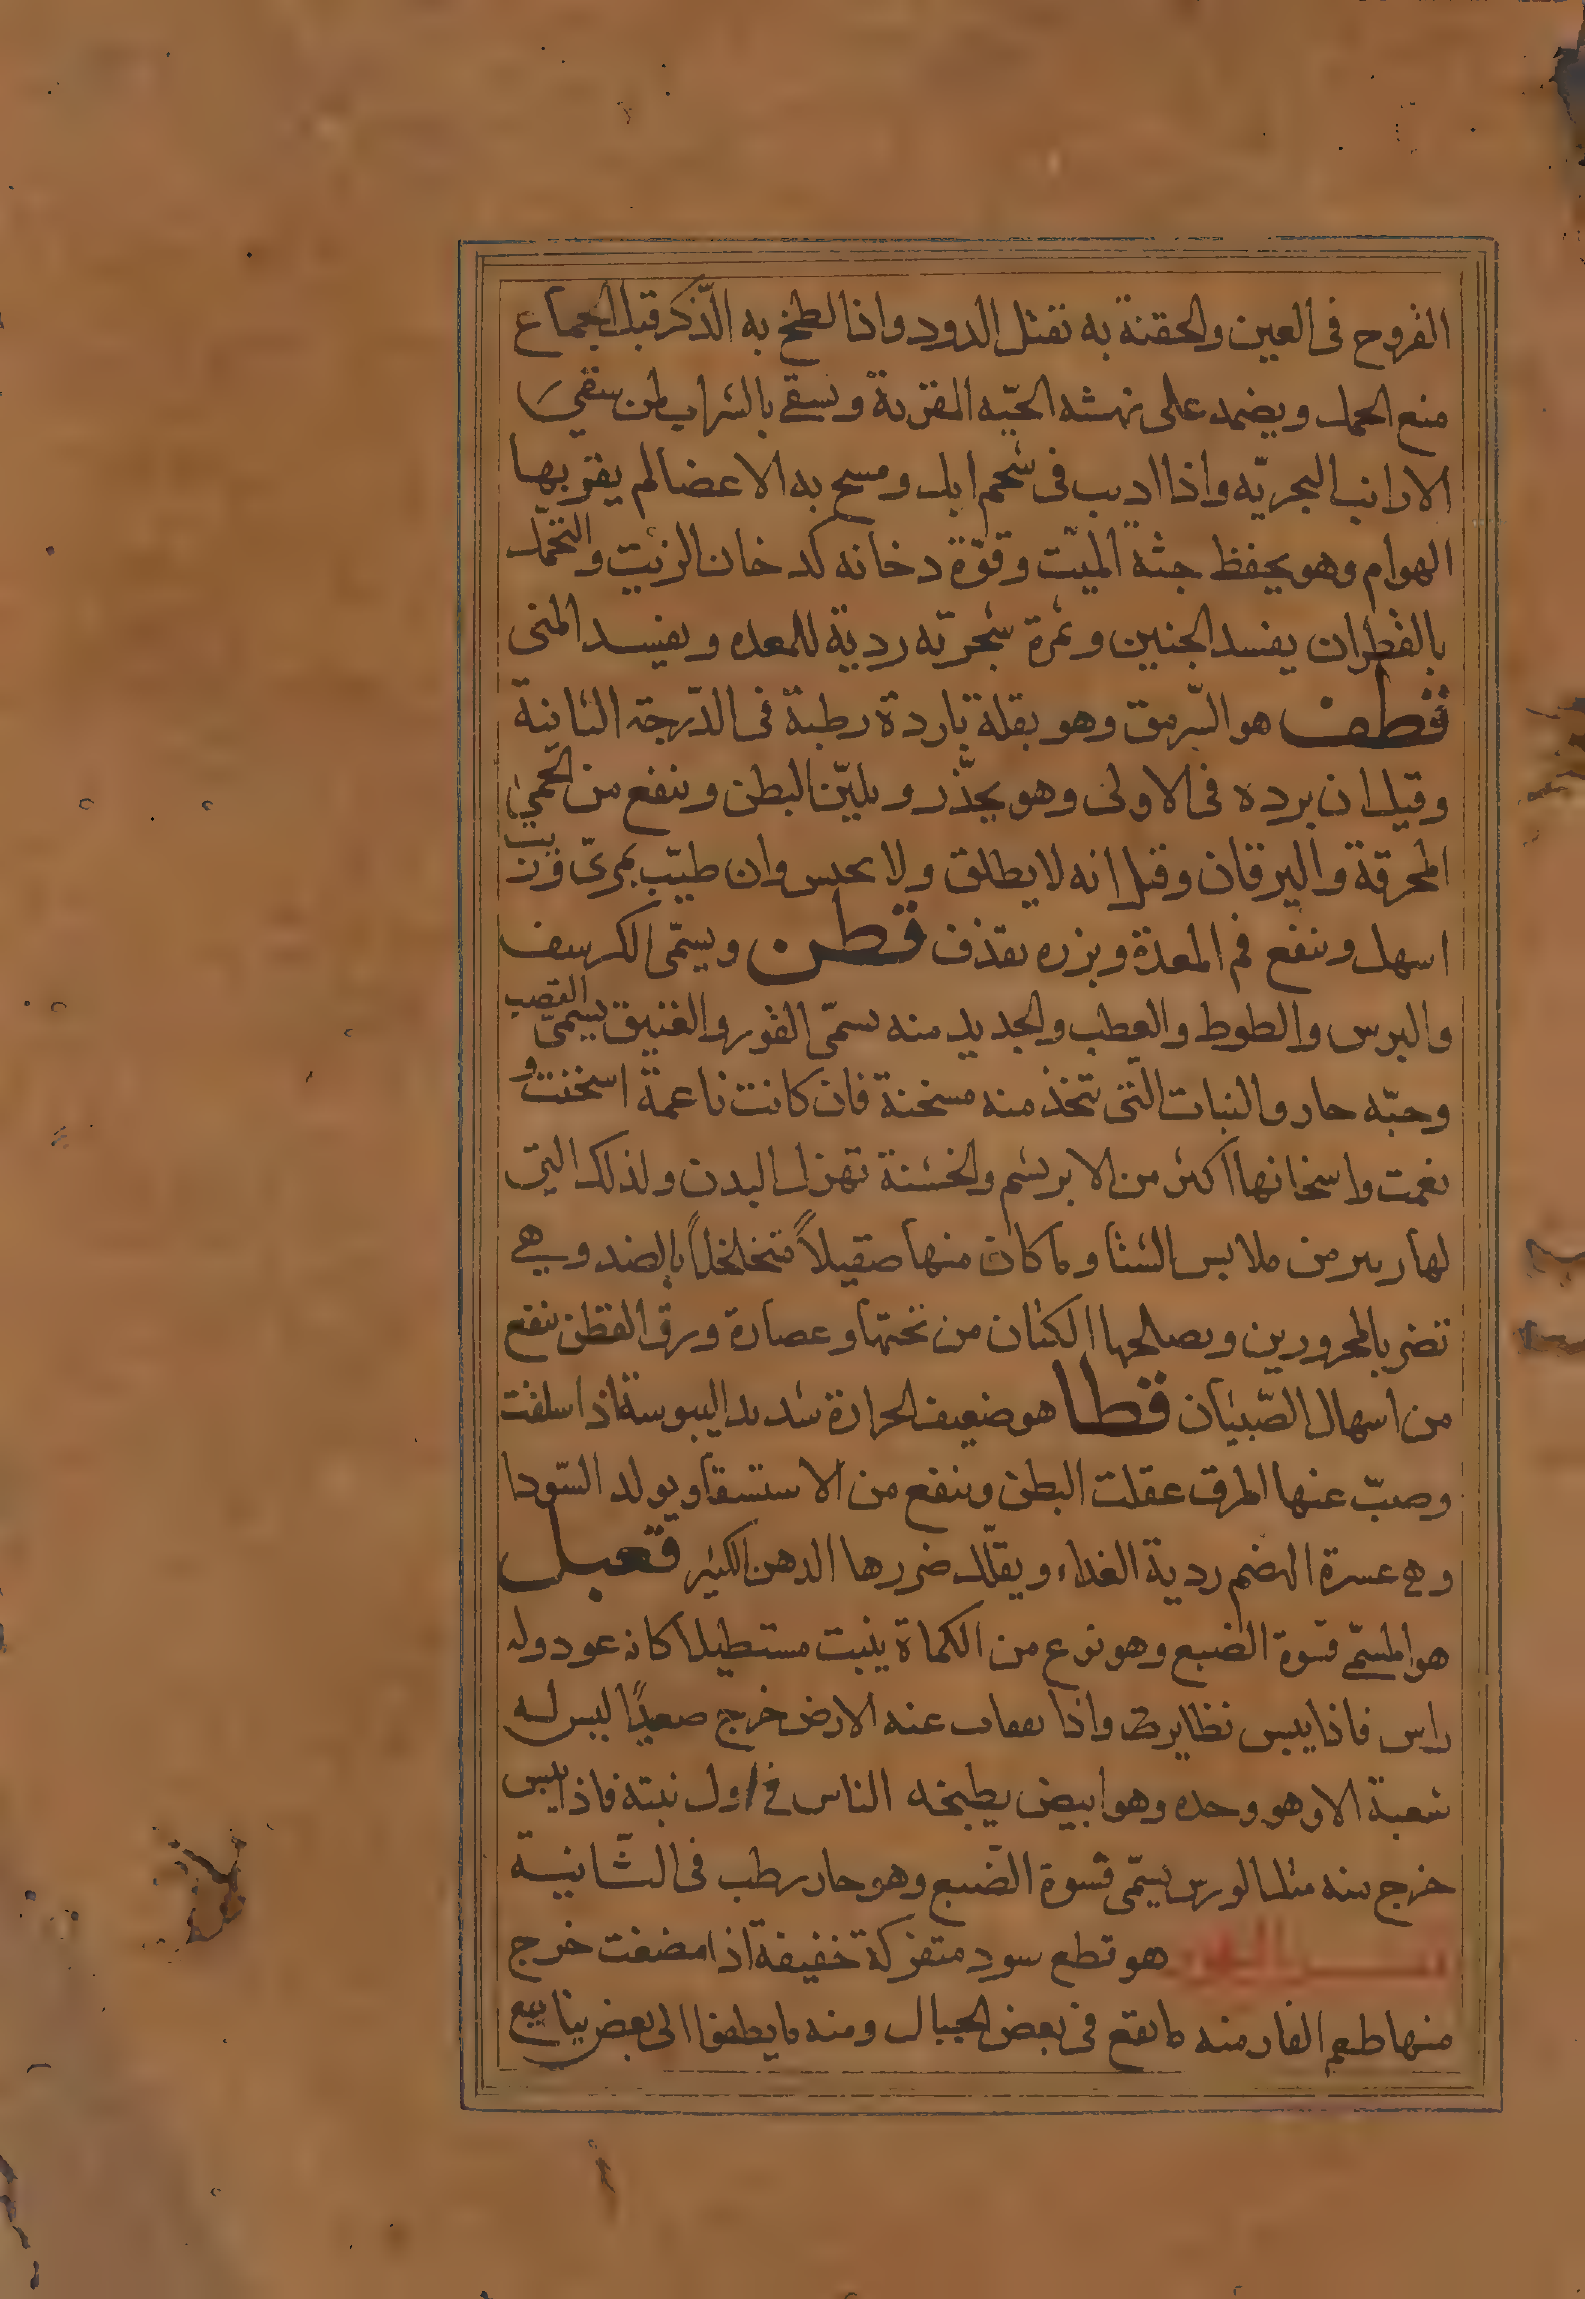 القروح فى العين والحقنة به تقتل الدود واذا لطخ به الذّكر قبل الجماع
منع الحمل ويضمد على نهشه الحيّه المقرنة ويسقى بالشراب لمن سقى
الارانب البحريّه واذا اديب فى شحم ايل ومسح به الاعضا لم يقربها
الهوام وهو يحفظ جثة الميّت وقوّة دخانه كدخان الزيت والتحمّل
بالقطران يفسد الجنين وثمرة شجرته ردية للمعده ويفسد المنى
قطف هو السّرمق وهو بقلة باردة رطبة فى الدّرجة الثانية
وقيل ان برده فى الاولى وهو يحدّر ويليّن البطن وينفع من الحمى
المحرقة واليرقان وقيل انه لا يطلق ولا يحبس وان طيّب بمرىّ وزيت
اسهل وينفع فم المعدة وبزره يقذف قطن ويسمّى الكرسف
والبرس والطوط والعطب والجديد منه يسمّى القور والعتيق يسمىّ القصب
وحبّه حار والنبات الّتى تتخذ منه مسخنة فان كانت ناعمة اسخنت و
نعمت واسخانها اكثر من الابريشم والخشنة تهزل البدن ولذلك التى
لها زيبر من ملابس الشتا وما كان منها صقيلاً متخلخلاً بالضد وهى
تضر بالمحرورين ويصلحها الكتان من تحتها وعصارة ورق القطن ينفع
من اسهال الصّبيان قطا هو ضعيف الحرارة شديد اليبوسة اذا سلقت
وصبّ عنها المرق عقلت البطن وينفع من الاستسقا ويولد السّودا
وهى عسرة الهضم ردية الغداء ويقلّل ضررها الدهن الكثير قعبل
هو المسمّى فسوة الضبع وهو نوع من الكماة ينبت مستطيلا كانه عود وله
راس فاذا يبس تطاير واذا عنه الارض خرج صعيدًا ليس له
شعبة الا وهو وحده وهو ابيض يطبخه الناس فى اول نبته فاذا يبس
خرج منه مثل الورس يسمّى فسوة الضّبع وهو حار رطب فى الثّانية
هو قطع سود متفركة خفيفة اذا مضغت خرج
منها طعم القار منه ما يقع فى بعض الجبال ومنه ما يطفوا الى بعض ينابيع